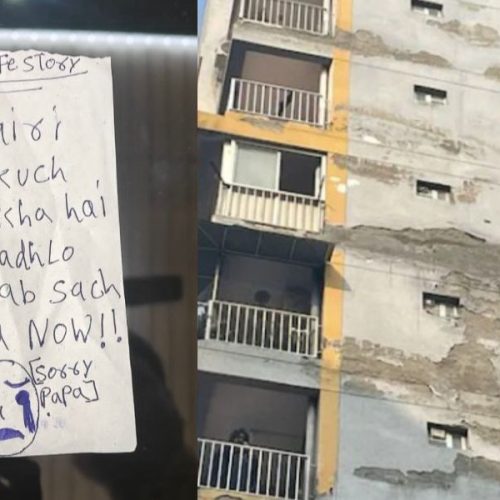 Fe STORY
airi
kuch
kha hai
adhlo
ab sach
NOW!!
[sorry
papa]